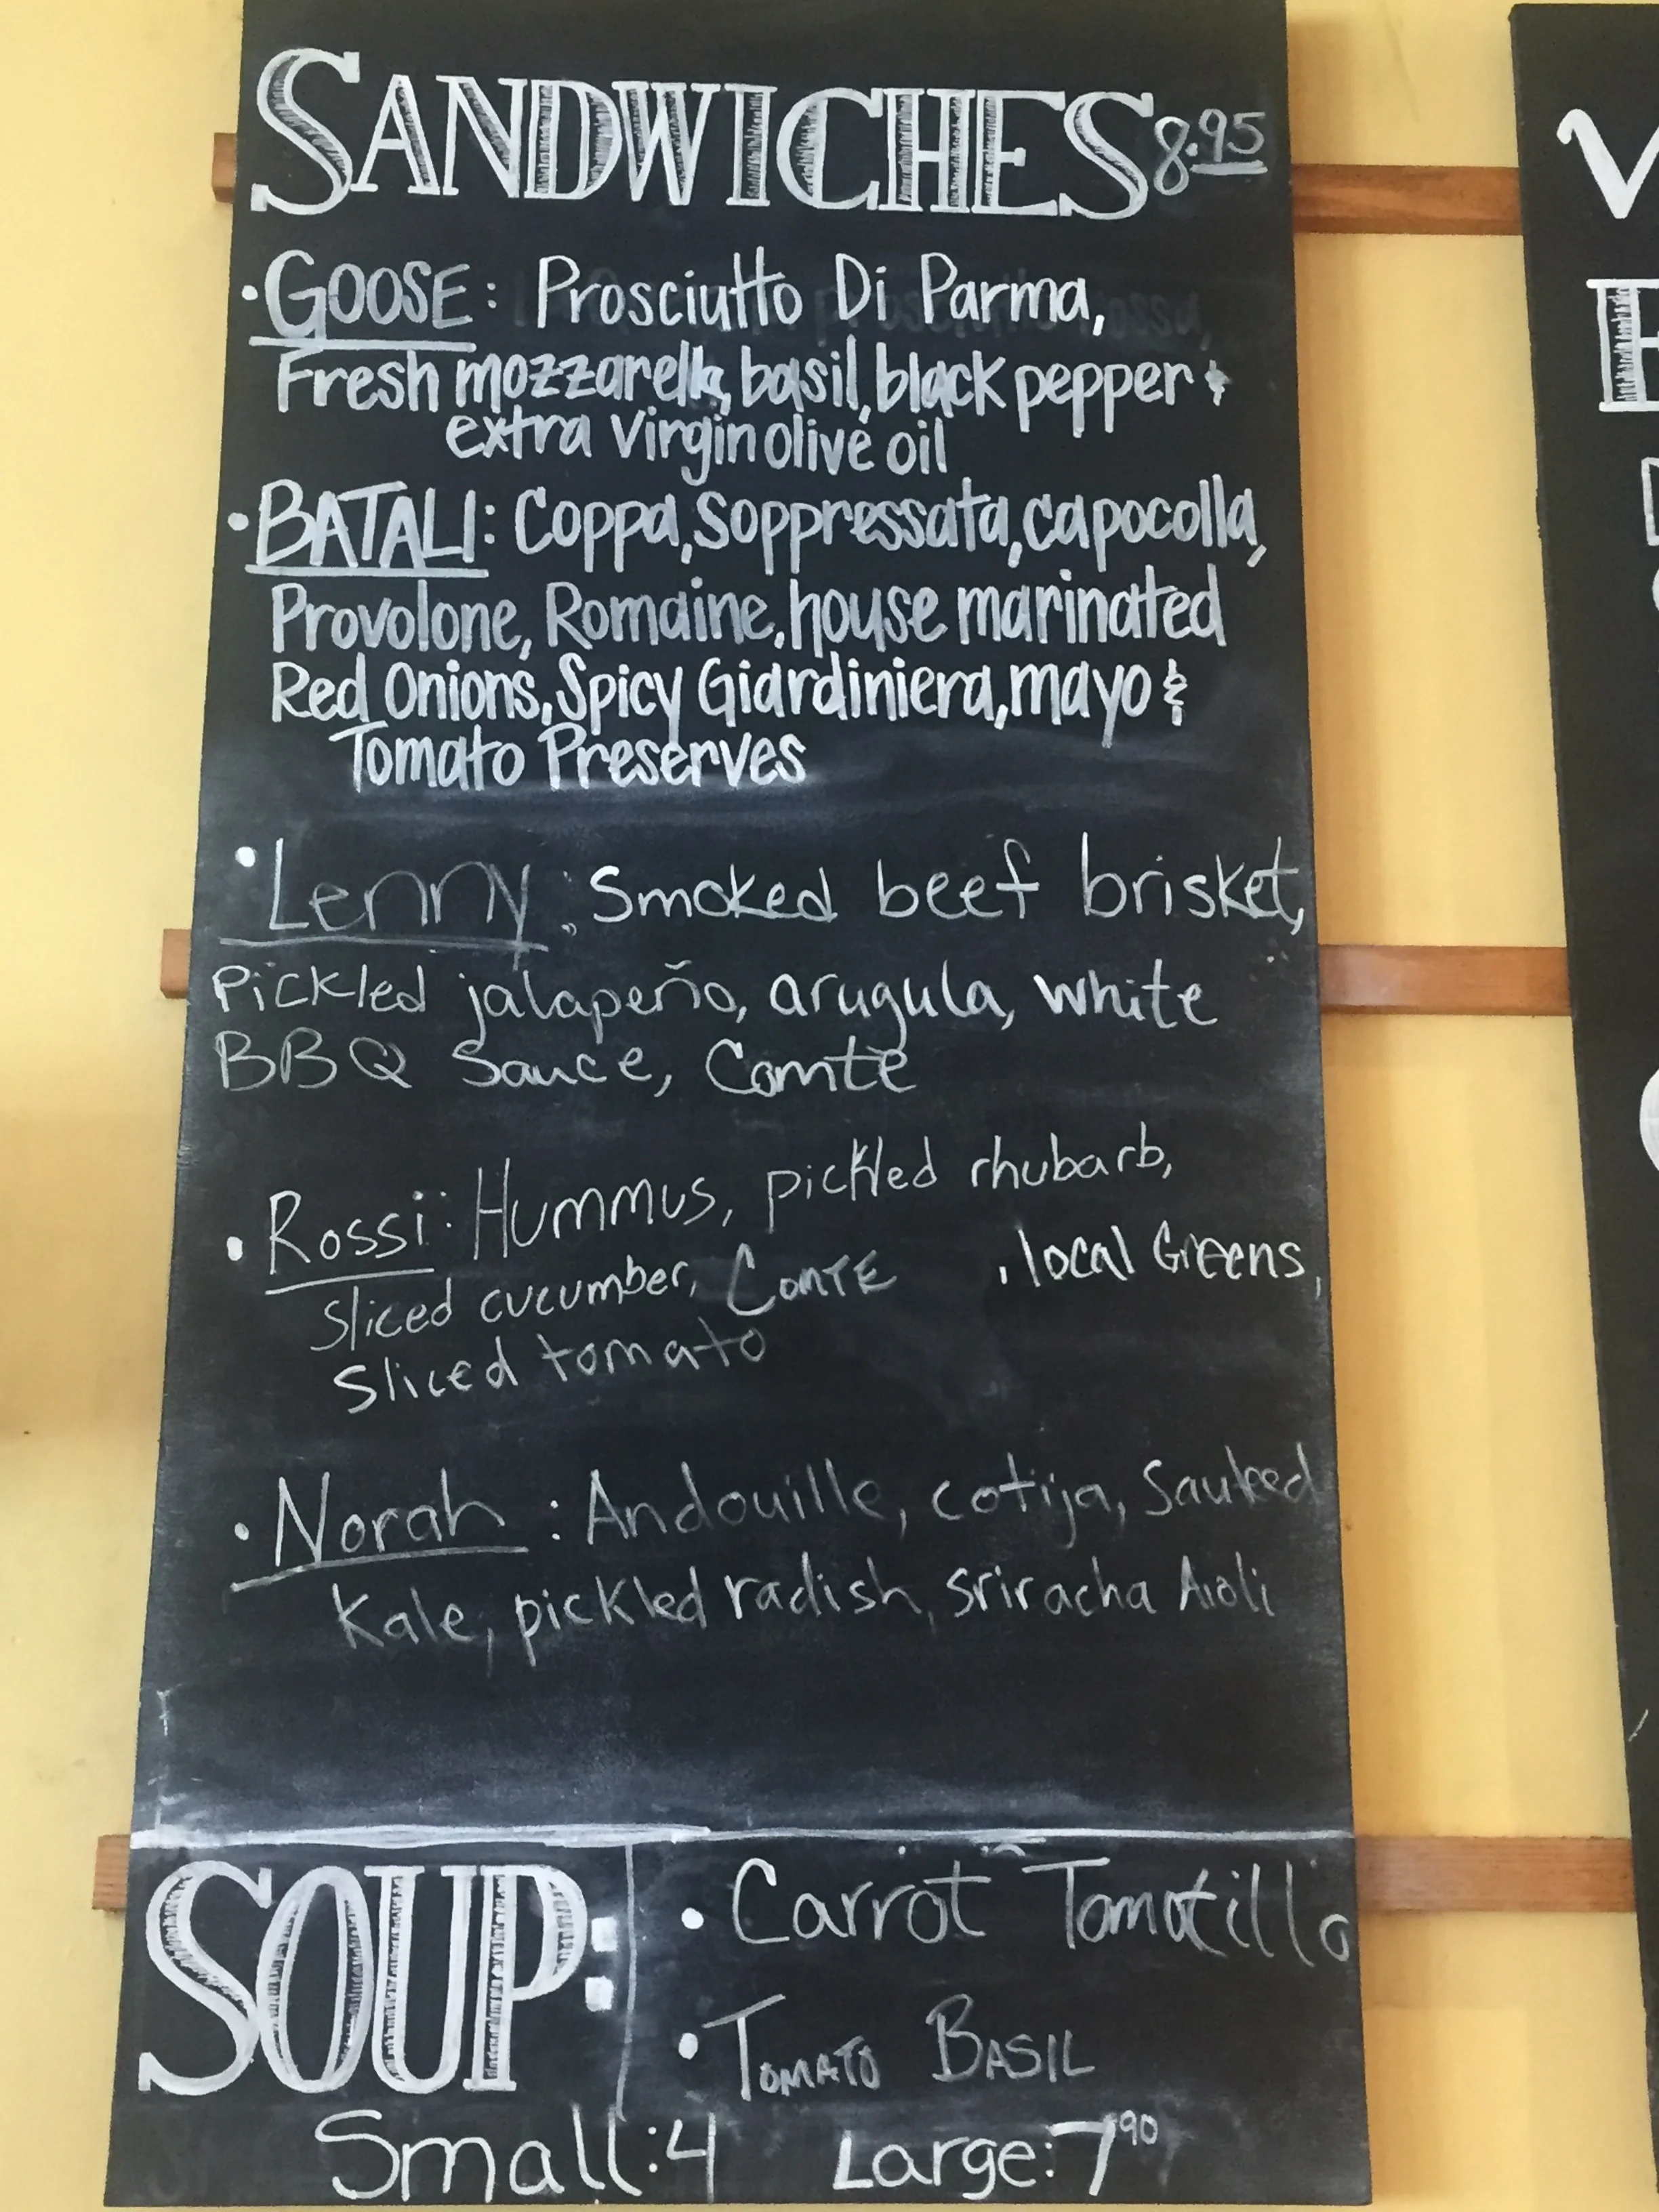 SANDWICHES 8.95
·GOOSE: Prosciutto Di Parma,
Fresh mozzarella, basil, black pepper &
extra Virgin olive oil
·BATALI: Coppa, Soppressata, capocolla,
Provolone, Romaine, house marinated
Red Onions, Spicy Giardiniera, mayo &
Tomato Preserves
·Lenny: Smoked beef brisket,
Pickled jalapeño, arugula, white
BBQ Sauce, Comte
·Rossi: Hummus, pickled rhubarb,
Sliced cucumber, Comte , local Greens,
Sliced tomato
·Norah: Andouille, cotija, Sauteed
Kale, pickled radish, sriracha Aioli
SOUP:
·Carrot Tomatillo
·Tomato Basil
Small: 4 Large: 7 90